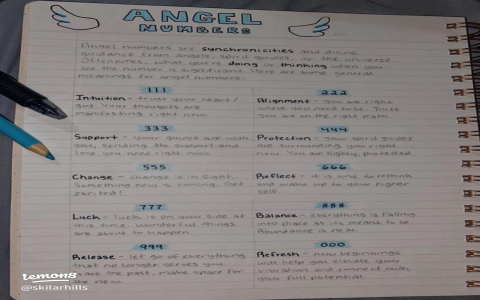 ANGEL
NUMBERS
Angel numbers are synchronicities and divine
guidance from angels, spirit guides, or the universe.
Oftentimes, what you're doing or thinking when you
see the number is significant. Here are some general
meanings for angel numbers:
111
Intuition - trust your heart/
gut. Your thoughts are
manifesting right now.
222
Alignment - you are right
where you need to be. Trust
you are on the right path.
333
Support - your guides are with
you, sending the support and
love you need right now.
444
Protection - your spirit guides
are surrounding you right
now. You are highly protected.
555
Change - change is in sight.
Something new is coming. Get
excited!
666
Reflect - it is time to rethink
and wake up to your higher
self.
777
Luck - luck is on your side at
this time. Wonderful things
are about to happen.
888
Balance - everything is falling
into place as it's meant to be.
Abundance is near.
999
Release - let go of everything
that no longer serves you.
the past, make space for
the new.
000
Refresh - new beginnings
will help you elevate your
vibration and connect with
your full potential.
lemon8
@skilarhills